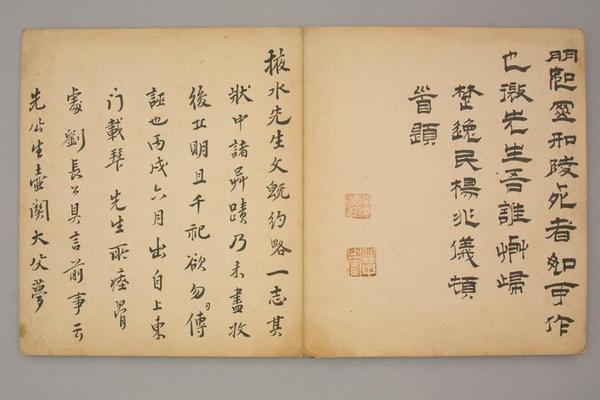 和陵死者如可作
也微先生吾誰歸
楚逸民楊兆儀頓
首題
掖水先生文既約略一志其
狀中諸異蹟乃未盡收
後丘明且千祀欲勿傳
誣也丙戌六月出自上東
门載琴先生所瘞骨
處劉長公具言前事云
先公生壺関大父夢